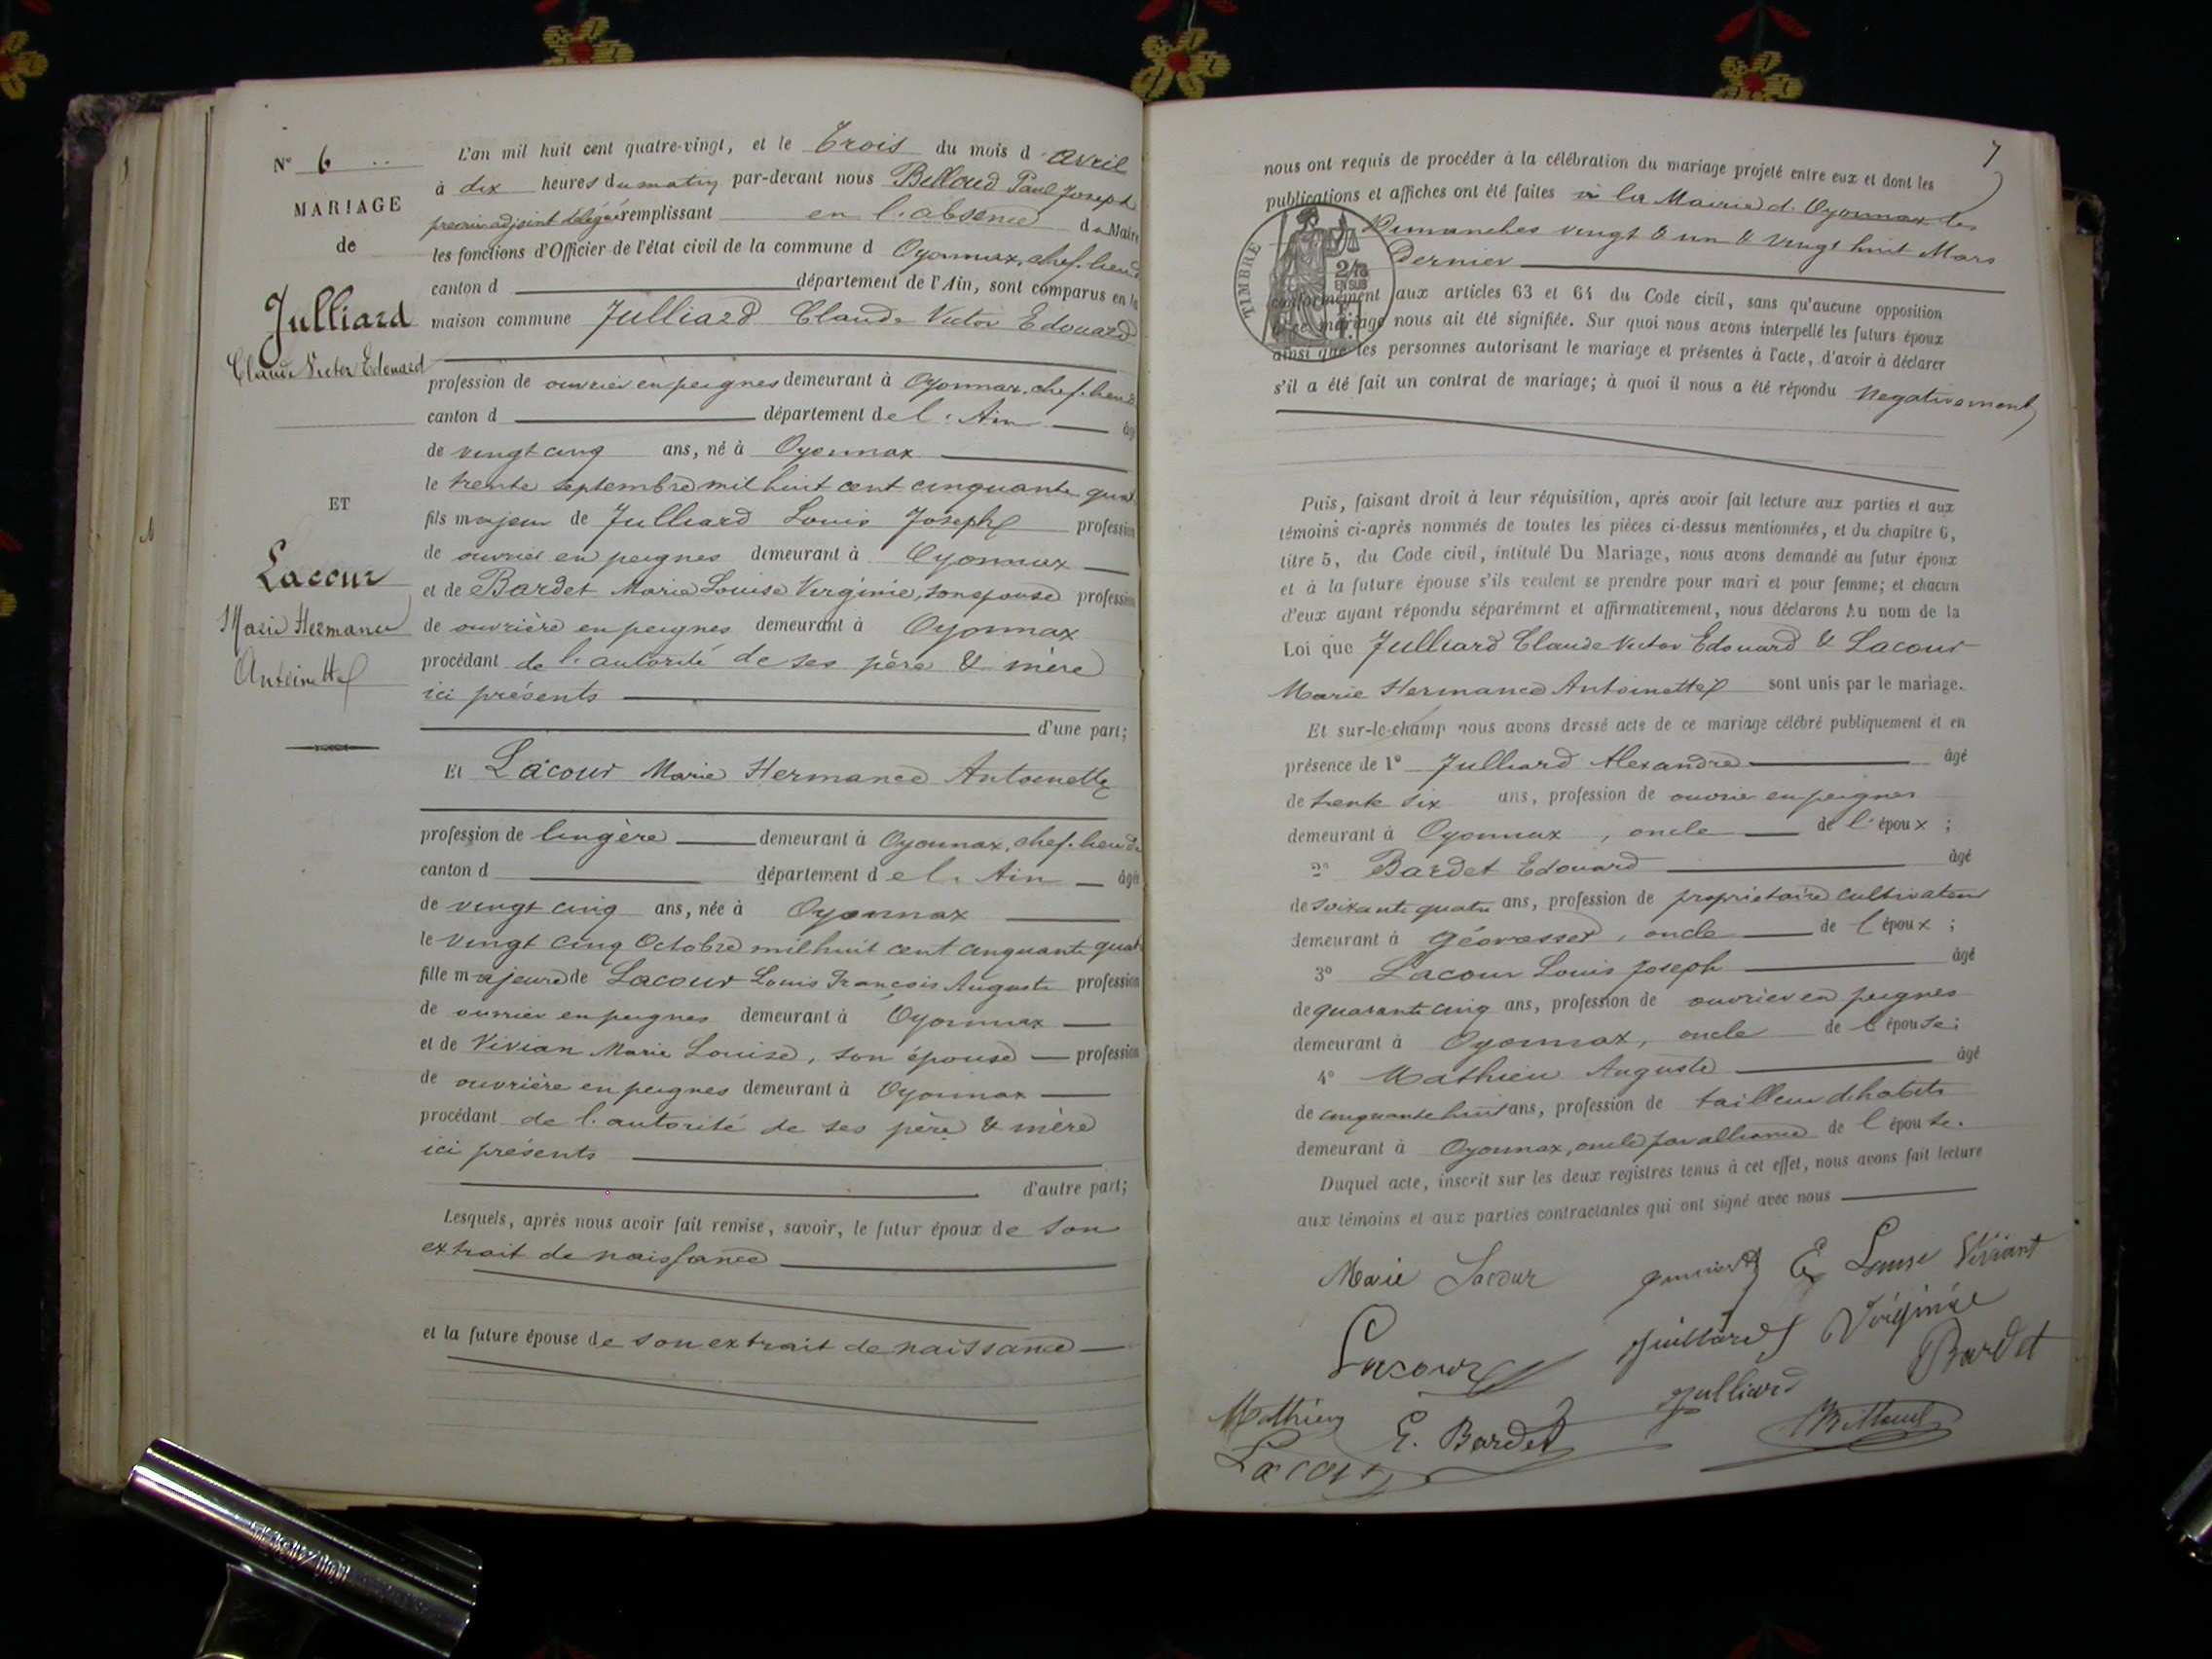 N° 6
MARIAGE
de
Julliard
Claude Victor Edouard
ET
Lacour
Marie Hermance
Antoinette
L'an mil huit cent quatre-vingt, et le Trois du mois d'Avril
à dix heures du matin par-devant nous Belloud Paul Joseph
premier adjoint délégué remplissant en l'absence du Maire
les fonctions d'Officier de l'état civil de la commune d Oyonnax, chef-lieu de
canton d département de l'Ain, sont comparus en la
maison commune Julliard Claude Victor Edouard
profession de ouvrier en peignes demeurant à Oyonnax, chef-lieu de
canton d département de l'Ain âgé
de vingt cinq ans, né à Oyonnax
le trente septembre mil huit cent cinquante quat
fils majeur de Julliard Louis Joseph profession
de ouvrier en peignes demeurant à Oyonnax
et de Bardet Marie Louise Virginie, son épouse profession
de ouvrière en peignes demeurant à Oyonnax
procédant de l'autorité de ses père & mère
ici présents
d'une part;
Et Lacour Marie Hermance Antoinette
profession de lingère demeurant à Oyonnax, chef-lieu de
canton d département de l'Ain âgée
de vingt cinq ans, née à Oyonnax
le vingt cinq Octobre mil huit cent cinquante quat
fille majeure de Lacour Louis François Auguste profession
de ouvrier en peignes demeurant à Oyonnax
et de Vivian Marie Louise, son épouse profession
de ouvrière en peignes demeurant à Oyonnax
procédant de l'autorité de ses père & mère
ici présents
d'autre part;
Lesquels, après nous avoir fait remise, savoir, le futur époux de son
extrait de naissance
et la future épouse de son extrait de naissance
7
nous ont requis de procéder à la célébration du mariage projeté entre eux et dont les
publications et affiches ont été faites à la Mairie d'Oyonnax les
Dimanches vingt & un & vingt huit Mars
Dernier
TIMBRE
2/10
EN SUS
conformément aux articles 63 et 64 du Code civil, sans qu'aucune opposition
à ce mariage nous ait été signifiée. Sur quoi nous avons interpellé les futurs époux
ainsi que les personnes autorisant le mariage et présentes à l'acte, d'avoir à déclarer
s'il a été fait un contrat de mariage; à quoi il nous a été répondu Negativement
Puis, faisant droit à leur réquisition, après avoir fait lecture aux parties et aux
témoins ci-après nommés de toutes les pièces ci-dessus mentionnées, et du chapitre 6,
titre 5, du Code civil, intitulé Du Mariage, nous avons demandé au futur époux
et à la future épouse s'ils veulent se prendre pour mari et pour femme; et chacun
d'eux ayant répondu séparément et affirmativement, nous déclarons Au nom de la
Loi que Julliard Claude Victor Edouard & Lacour
Marie Hermance Antoinette sont unis par le mariage.
Et sur-le-champ nous avons dressé acte de ce mariage célébré publiquement et en
présence de 1° Julliard Alexandre âgé
de trente six ans, profession de ouvrier en peignes
demeurant à Oyonnax, oncle de l'époux;
2° Bardet Edouard âgé
de soixante quatre ans, profession de propriétaire cultivateur
demeurant à Géovresset, oncle de l'époux;
3° Lacour Louis Joseph âgé
de quarante cinq ans, profession de ouvrier en peignes
demeurant à Oyonnax, oncle de l'épouse;
4° Mathieu Auguste âgé
de cinquante huit ans, profession de tailleur d'habits
demeurant à Oyonnax, oncle par alliance de l'épouse.
Duquel acte, inscrit sur les deux registres tenus à cet effet, nous avons fait lecture
aux témoins et aux parties contractantes qui ont signé avec nous
Marie Lacour Louise Viviant
Lacour Juilliard Virginie
Bardet
Mathieu E. Bardet Julliard
Lacour